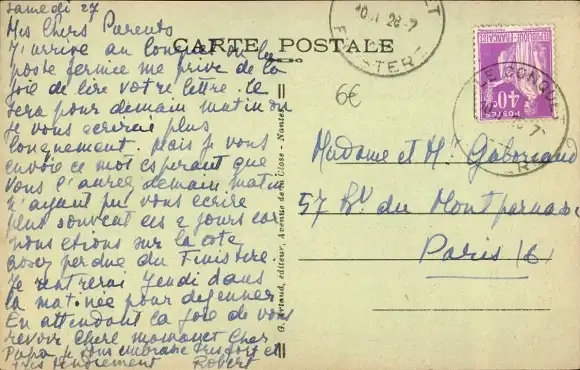 Samedi 27
Mes Chers Parents
J'arrive au Conquet ou la
poste fermée me prive de la
joie de lire votre lettre. Ce
sera pour demain matin ou
Je vous ecrirai plus
longuement. Mais je vous
envoie ce mot esperant que
vous l'aurez demain matin
n'ayant pu vous ecrire
plus souvent ces 2 jours car
nous etions sur la cote
assez perdue du Finistère.
Je rentrerai Jeudi dans
la matinée pour dejeuner
En attendant la joie de vous
revoir Chère mamanet Cher
Papa je vous embrasse tres fort et
très tendrement Robert
CARTE POSTALE
6€
G. Artaud, éditeur, Avenue de la Close - Nantes
FINISTERE
28-7
RÉPUBLIQUE FRANÇAISE
40c
POSTES
LE CONQUET
Madame et Mr Gaboriaud
57 Bd du Montparnasse
Paris (6)